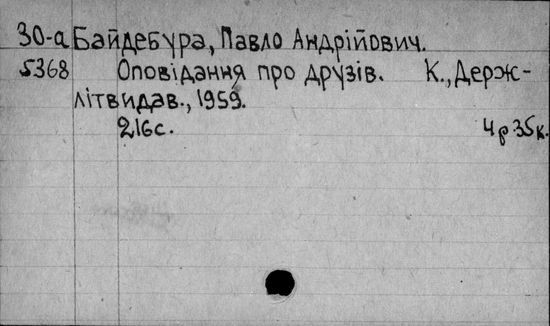 30-а Байдебура, Павло Андрійович.
5368 Оповідання про друзів. К., Держ-
літвидав., 1959.
216с. 4р.35к.